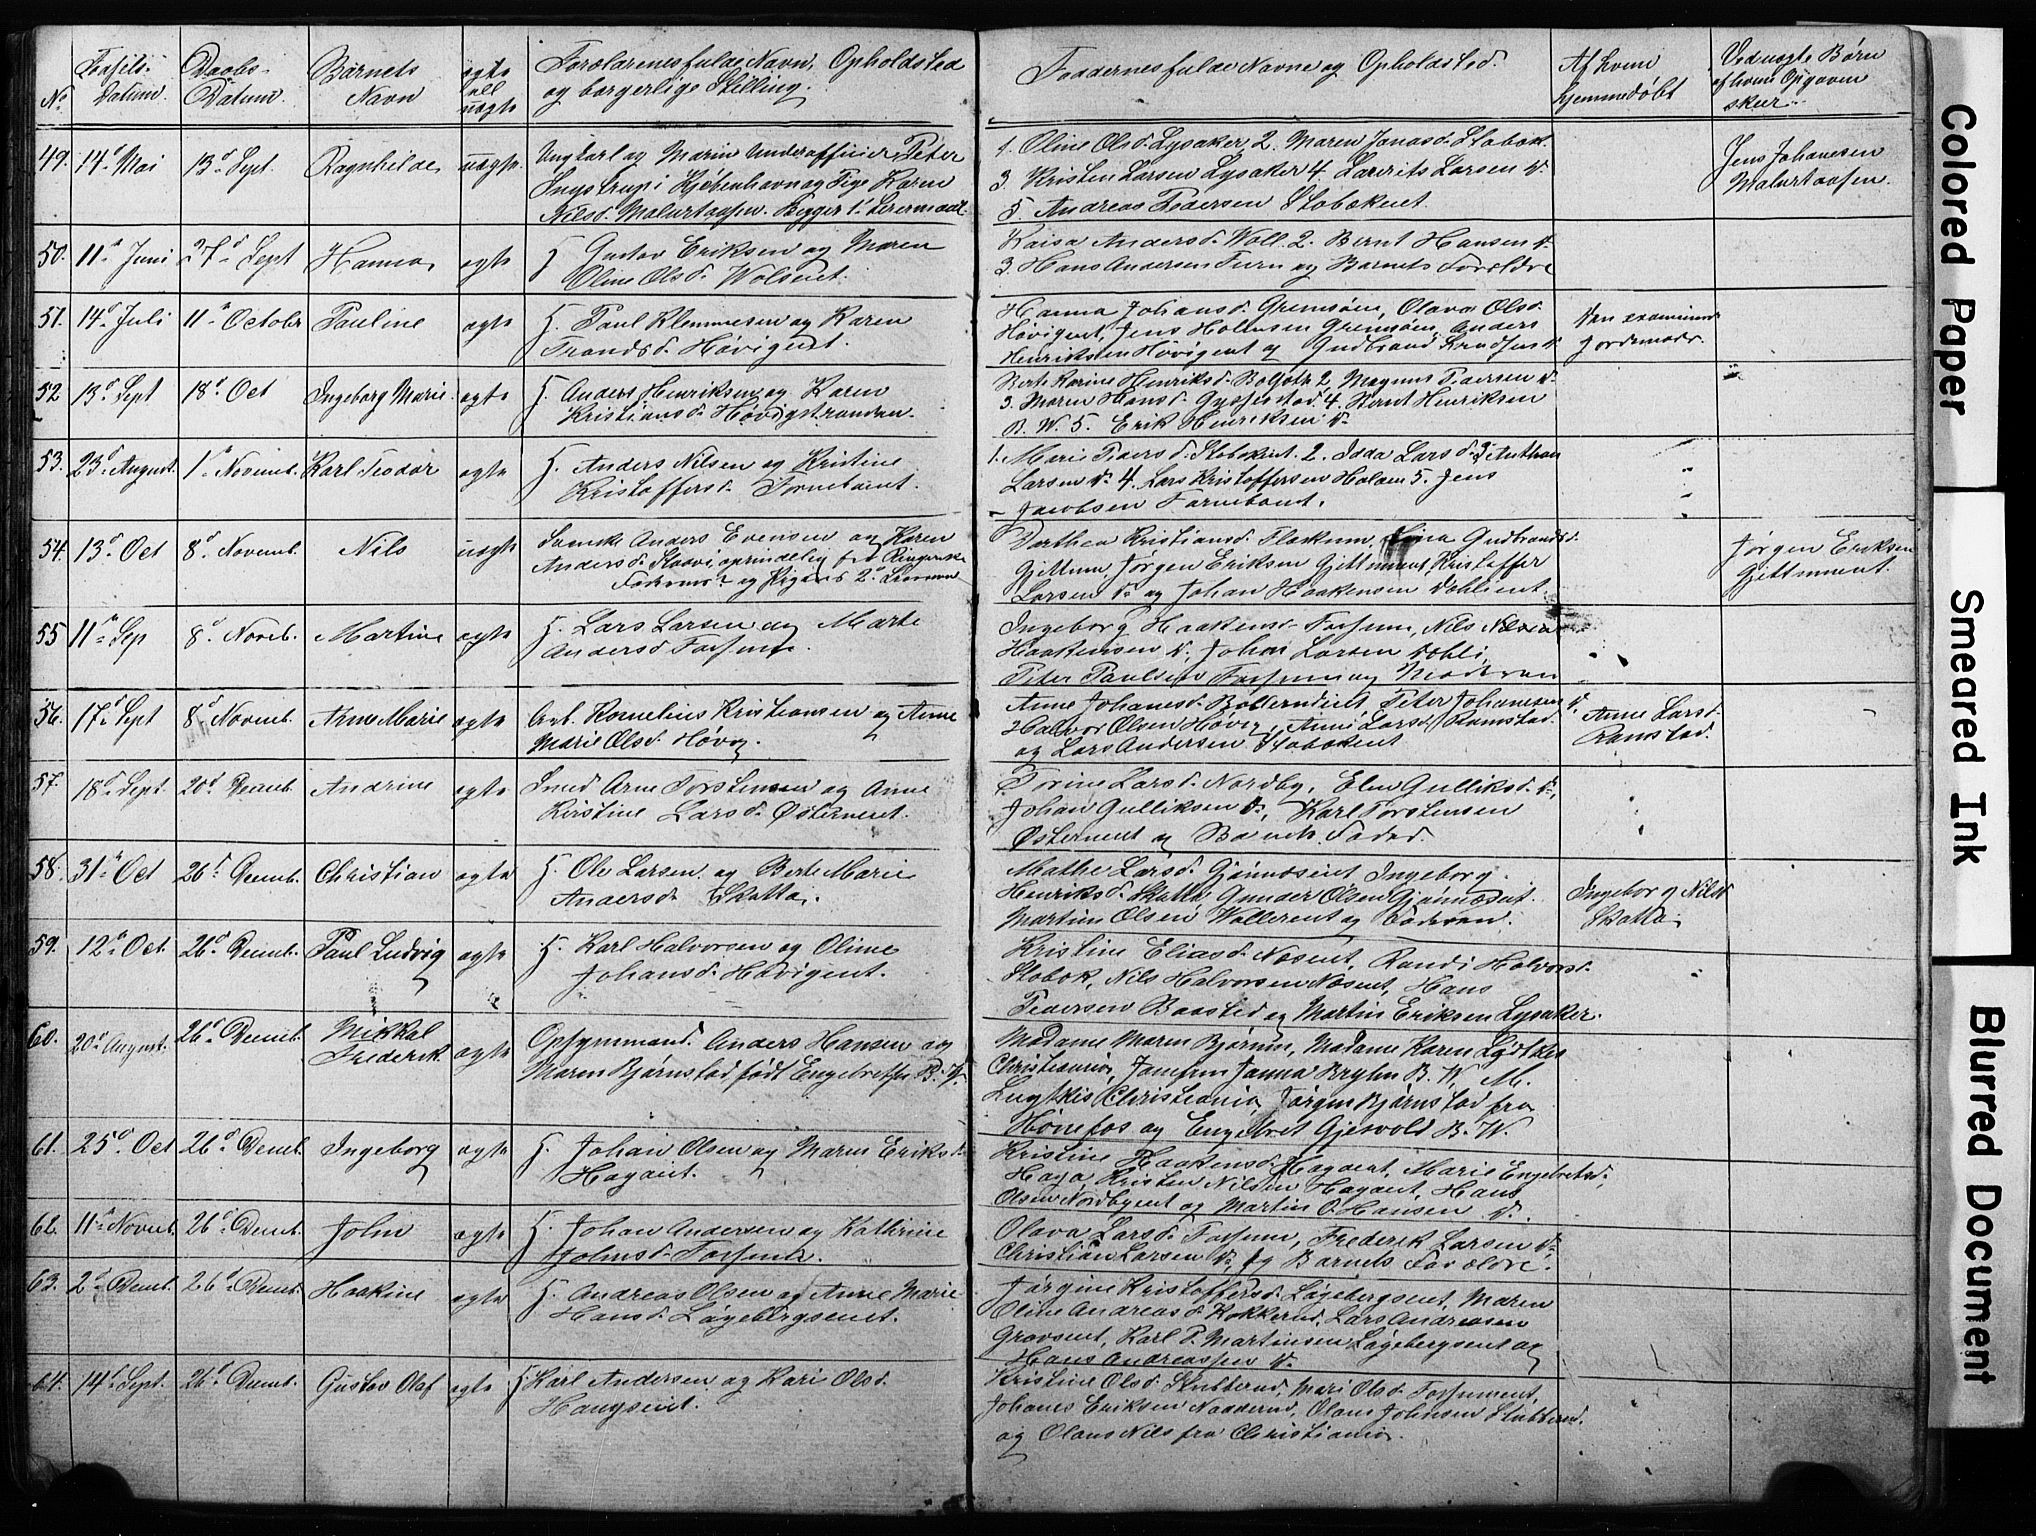 No
Fødsels-
Datum.
Daabs-
Datum.
Barnets
Navn
ægte
ell
uægte
Forældrenes fulde Navn, Opholdsted
og borgerlige Stilling.
Faddernes fulde Navne og Opholdsted.
Af hvem
hjemmedøbt
Ved uægte Børn
af hvem Opgaven
skeer.
49. 14d Mai 13d Sept. Ragnhilde uægte. Ungkarl og Marin Underofficier Peter
i Kjøbenhavn og Pige Karen
Nilsd. Begges 1te Leiermaal.
1. Oline Olsd. Lysaker 2. Maren Jonasd. Stabæk.
3. Kristen Larsen Lysaker 4. Laurits Larsen do
5. Andreas Pedersen Stabækeiet.
Jens Johanesen
50. 11te Juni 27d Sept Hanna ægte G. Gustav Eriksen og Maren
Oline Olsd.
Kaisa Andersd. Voll 2. Bernt Hansen do
3. Hans Andersen og Barnets Forældre
51. 14d Juli 11te Octobr Pauline ægte G. Paul Klemmesen og Karen
Trondsd. Høvigeiet.
Hanna Johansd. Grensøen, Olava Olsd.
Høvigeiet, Jens Grensøen, Anders
Henriksen Høvigeiet og Gudbrand Knudsen do
Den examinerede
Jordemoder.
52 13d Sept 18d Oct Ingeborg Marie. ægte G. Anders Henriksen og Karen
Kristiansd. Høvigstranden.
Berte Karine Henriksd. 2. Magnus Pedersen do
3. Maren Hansd. 4. Bernt Henriksen
B. W. 5. Erik Henriksen do
53. 23d August. 1te Novemb. Karl Teodor ægte G. Anders Nilsen og Kristine
Kristoffersd. Fornebueiet.
1. Marie Pedersd. Stabækeiet. 2. Idda Larsd. 3 Anthon
Larsen do 4. Lars Kristoffersen Holm 5. Jens
Jacobsen Fornebueiet.
54. 13d Oct 8d Novemb. Nils uægte Svenske Anders Evensen og Karen
Andersd. oprindelig fra Ringerike
Faderens og Pigens 2d
Dorthea Kristiansd. Flaskum, Lina Gudbrandsd.
Gjettum, Jørgen Eriksen Gjettumeiet, Kristoffer
Larsen do og Johan Haakensen Dahlieiet.
Jørgen Eriksen
Gjettumeiet.
55 11te Sep 8d Noveb. Martine ægte G. Lars Larsen og Marte
Andersd Fossum.
Ingeborg Haakensd. Fossum, Nils
Haakensen do, Johan Larsen Dæhli,
Peter Paulsen Fossum og Moderen
56. 17d Sept 8d Novemb. Anne Marie ægte Arb. Kornelius Kristiansen og Anne
Marie Olsd. Høvig.
Anne Johanesd. Peter Johanesen do
Halvor Olsen Høvig, Anne Larsd Ramstad.
og Lars Andersen Stabækeiet
Anne Larsd.
Ramstad.
57. 18d Sept. 20d Decemb. Andrine ægte Smed Arne Torstensen og Anne
Kristine Larsd. Østerneeiet.
Torine Larsd. Nordby, Elen Gulliksd. do,
Johan Gulliksen do, Karl Torstensen
Østerneeiet og Barnets Fader.
58. 31te Oct 26d Decemb. Christian ægte G. Ole Larsen og Berte Marie
Andersd Skatta.
Mathe Larsd. Gjønneseiet Ingeborg
Henriksd. Skatta Gunder Olsen Gjønneseiet.
Martin Olsen Vollereiet og Faderen.
Ingeborg Nilsd
Skatta.
59. 12te Oct. 26d Decemb. Paul Ludvig ægte G. Karl Halvorsen og Oline
Johansd. Høvigeiet.
Kristine Eliasd. Næseiet, Randi Halvorsd.
Stabæk, Nils Halvorsen Næseiet, Hans
Pedersen Baastad og Martin Eriksen Lysaker.
60. 20d August. 26d Decemb. Mikkal
Frederik ægte Opsynsmand. Anders Hansen og
Maren Bjørnstad født Engebretsen B. V.
Madame Maren Bjørum, Madame Karen
Christiania, Jomfru Janna B. W. M.
Christiania, Jørgen Bjørnstad fra
Hønefos og Engebret Gjesvold B. W.
61. 25d Oct 26d Decemb. Ingeborg ægte G. Johan Olsen og Maren Eriksd.
Hagaeiet.
Kristine Haakensd. Hagaeiet, Marie Engebretsd.,
Haga, Kristen Nilsen Hagaeiet, Hans
Olsen Nordbyeiet og Martin O. Hansen do.
62. 11te Novemb. 26d Decemb. John ægte G. Johan Andersen og Kathrine
Johnsd. Fossum.
Olava Larsd. Fossum, Frederik Larsen do
Christian Larsen do, og Barnets Forældre.
63. 2d Decemb. 26d Decemb. Haakine ægte G. Andreas Olsen og Anne Marie
Hansd. Løgebergseiet.
Jørgine Kristoffersd. Løgebergseiet, Maren
Oline Andreasd. Kokkerud, Lars Andreasen
Gravseiet, Karl P. Martinsen Løgebergseiet og
Hans Andreassen do.
64. 14d Sept. 26d Decemb. Gustav Olaf ægte G. Karl Andersen og Kari Olsd.
Haugseiet.
Kristine Olsd. Stubberud, Mari Olsd. Fossumeiet,
Johanes Eriksen Nadderud, Olaus Johnsen Stubberud.
og Olaus Nils fra Christiania.
Colored Paper
Smeared Ink
Blurred Document